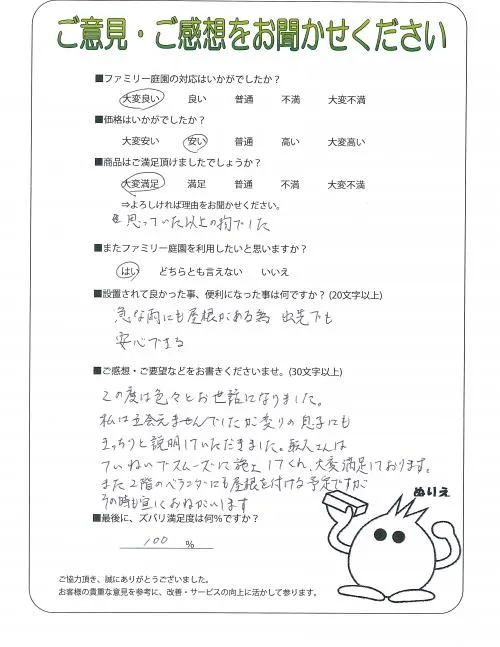 ご意見・ご感想をお聞かせください
■ファミリー庭園の対応はいかがでしたか？
大変良い 良い 普通 不満 大変不満
■価格はいかがでしたか？
大変安い 安い 普通 高い 大変高い
■商品はご満足頂けましたでしょうか？
大変満足 満足 普通 不満 大変不満
⇒よろしければ理由をお聞かせください。
思っていた以上の物でした
■またファミリー庭園を利用したいと思いますか？
はい どちらとも言えない いいえ
■設置されて良かった事、便利になった事は何ですか？(20文字以上)
急な雨にも屋根がある為 出先でも
安心できる
■ご感想・ご要望などをお書きくださいませ。(30文字以上)
この度は色々とお世話になりました。
私は立会えませんでしたが変りの息子にも
きっちりと説明していただきました。職人さんは
ていねいでスムーズに施工してくれ、大変満足しております。
また2階のベランダにも屋根を付ける予定ですが
その時も宜しくおねがいします
■最後に、ズバリ満足度は何%ですか？
100 %
ぬりえ
ご協力頂き、誠にありがとうございました。
お客様の貴重な意見を参考に、改善・サービスの向上に活かして参ります。